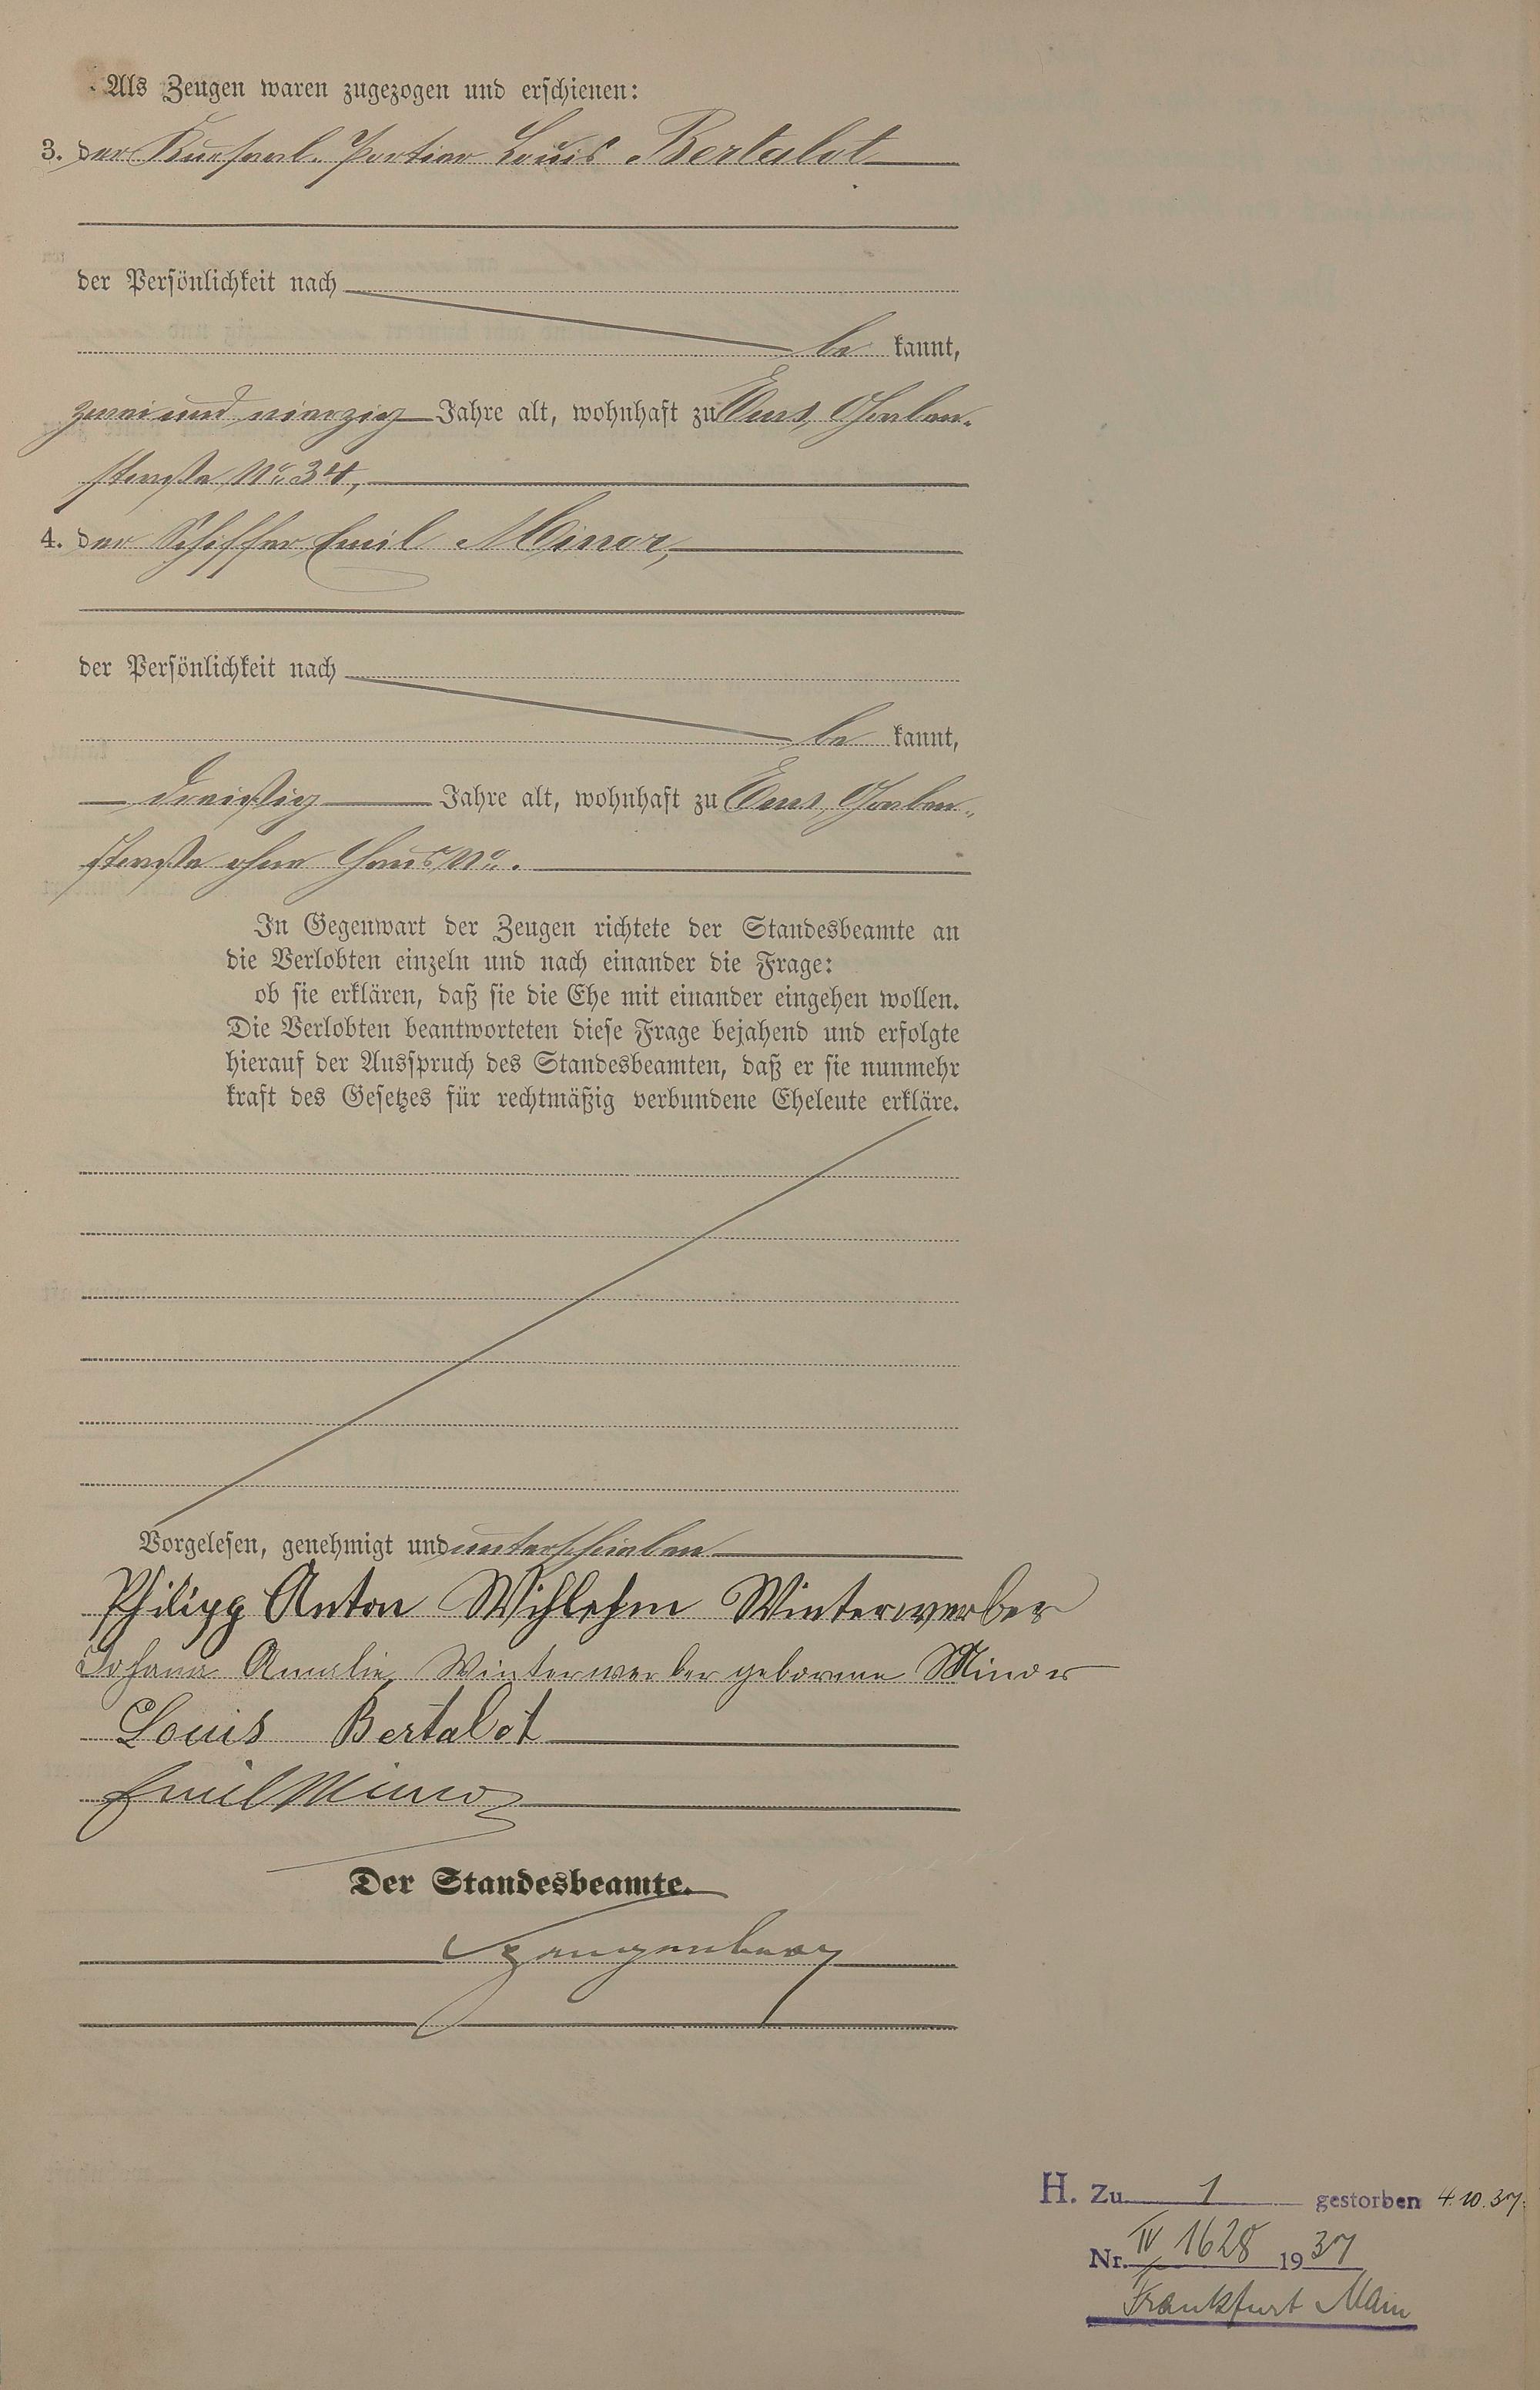 Als Zeugen waren zugezogen und erschienen:
3. der Kursaal-Portier Louis Bertalot
der Persönlichkeit nach
be kannt,
zwei und vierzig Jahre alt, wohnhaft zu Ems, Graben-
straße No. 34,
4. der Schiffer Emil Minor,
der Persönlichkeit nach
be kannt,
dreißig Jahre alt, wohnhaft zu Ems, Graben-
straße ohne Haus No.
In Gegenwart der Zeugen richtete der Standesbeamte an
die Verlobten einzeln und nach einander die Frage:
ob sie erklären, daß sie die Ehe mit einander eingehen wollen.
Die Verlobten beantworteten diese Frage bejahend und erfolgte
hierauf der Ausspruch des Standesbeamten, daß er sie nunmehr
kraft des Gesetzes für rechtmäßig verbundene Eheleute erkläre.
Vorgelesen, genehmigt und unterschrieben
Philipp Anton Wihlehm Winterwerber
Johana Amalie Winterwerber geborene Minor
Louis Bertalot
Emil Minor
Der Standesbeamte.
H. Zu 1 gestorben 4.10.37.
Nr. IV 1628 1937
Frankfurt Main